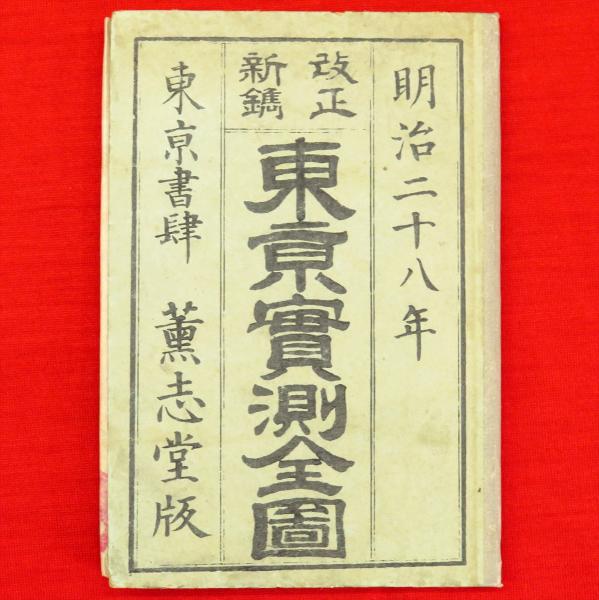 明治二十八年
改正
新鐫
東京實測全圖
東京書肆 薫志堂版